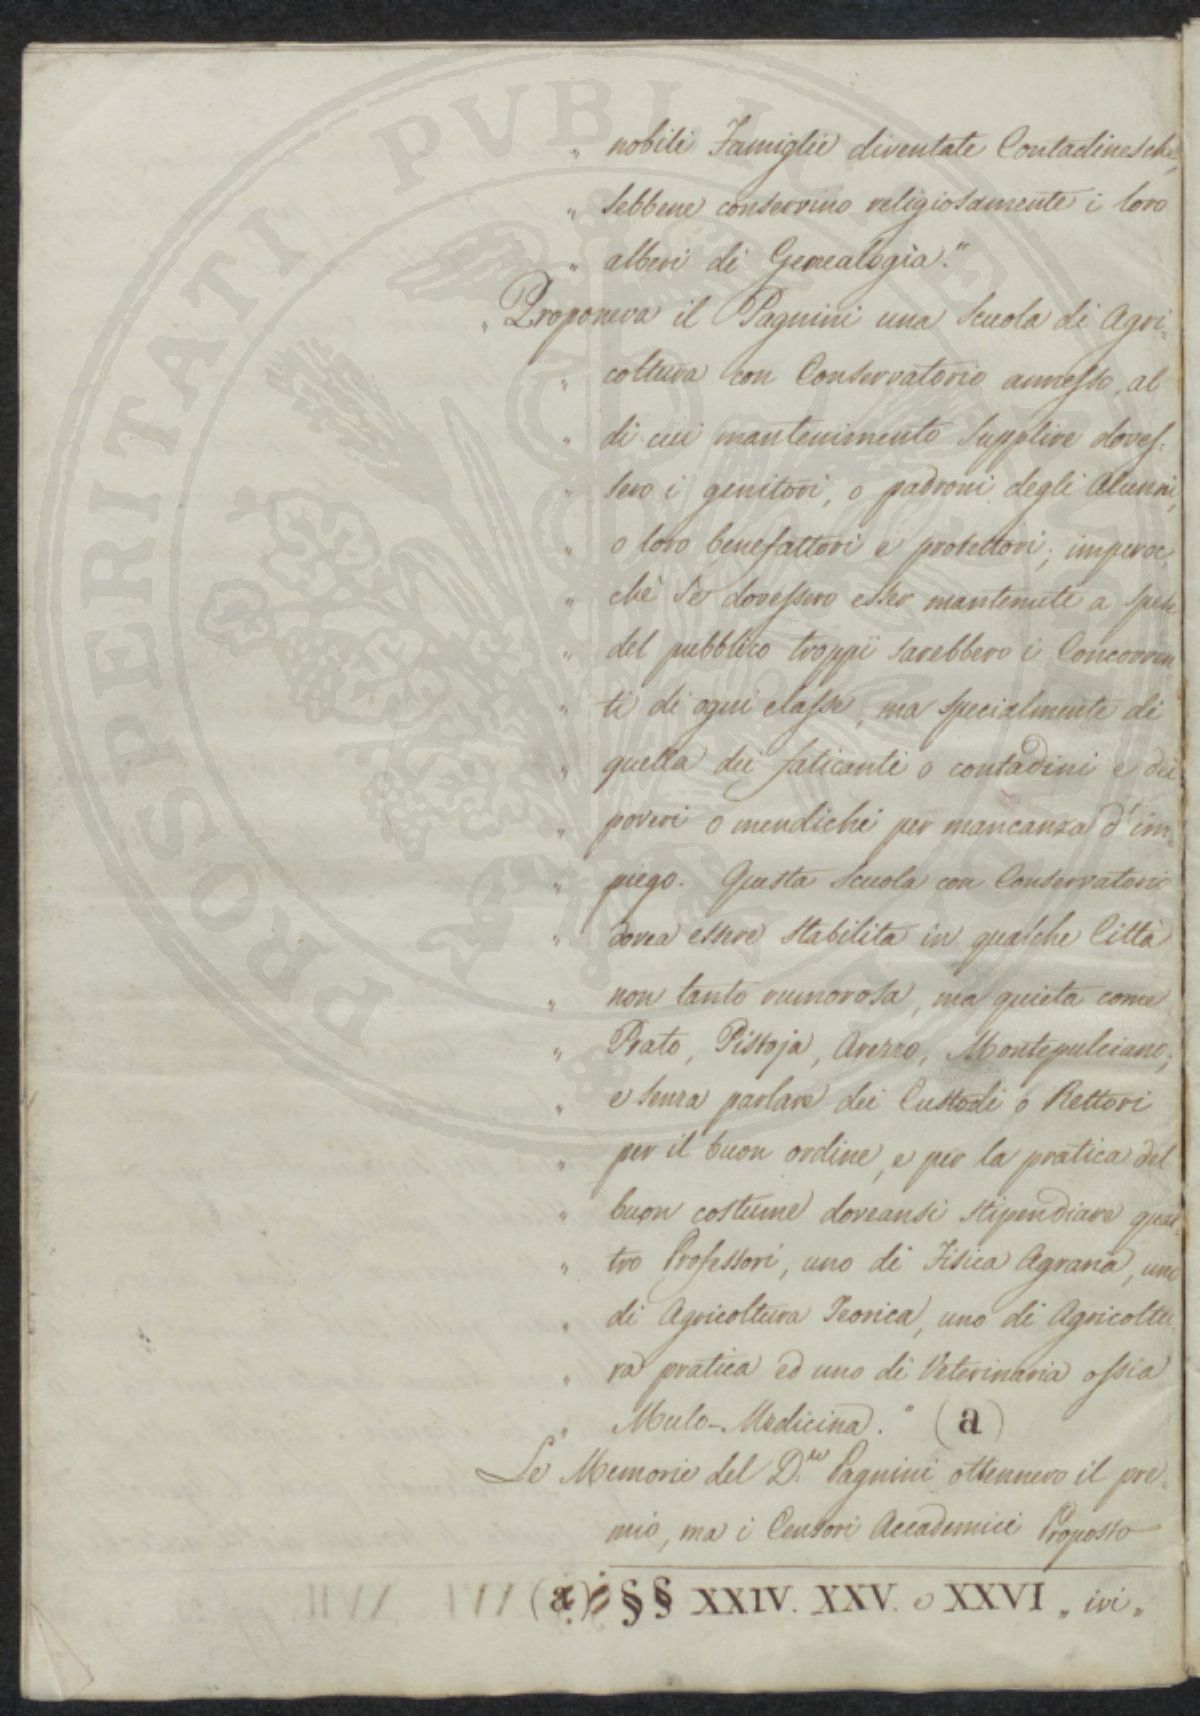 „ nobili Famiglie diventate Contadinesche,
„ sebbene conservino religiosamente i loro
„ alberi di Genealogìa."
„ Proponeva il Pagnini una Scuola di Agri-
„ coltura con Conservatorio annesso, al
„ di cui mantenimento supplire doves-
„ sero i genitori, o padroni degli Alunni,
„ o loro benefattori e protettori; imperoc-
„ chè se dovessero esser mantenuti a spese
„ del pubblico troppi sarebbero i Concorren
„ ti di ogni classe, ma specialmente di
„ quella dei faticanti o contadini e dei
„ poveri o mendichi per mancanza d'im
„ piego. Questa Scuola con Conservatorio
„ dovea essere stabilita in qualche Città
„ non tanto rumorosa, ma quieta come
„ Prato, Pistoja, Arezzo, Montepulciano;
„ e senza parlare dei Custodi o Rettori
„ per il buon ordine, e per la pratica del
„ buon costume doveansi stipendiare quat-
„ tro Professori, uno di Fisica Agraria, uno
„ di Agricoltura Teorica, uno di Agricoltu-
„ ra pratica ed uno di Veterinaria ossia
„ Mulo-Medicina." (a)
Le Memorie del D.re Pagnini ottennero il pre-
mio, ma i Censori Accademici Proposto
(a) §§ XXIV. XXV. e XXVI „ ivi „
PROSPERITATI PUBLICAE